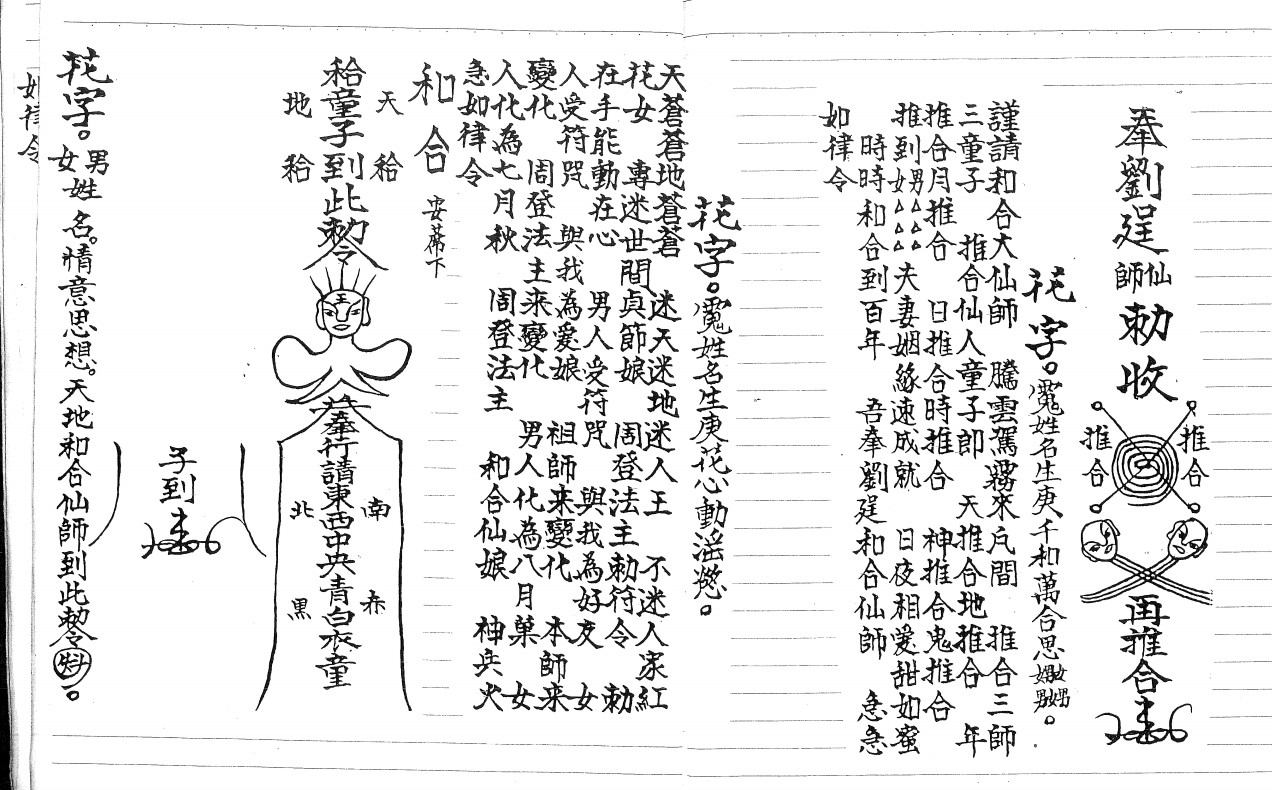 奉劉逞仙師勅收
推合
推合
再推合
花字。魂姓名生庚千和萬合思
謹請和合大仙師 騰雲駕霧來凡間 推合三師
三童子 推合仙人童子郎 天推合地推合 年
推合月推合 日推合時推合 神推合鬼推合
推到男女△△△△△△夫妻姻緣速成就 日夜相愛甜如蜜
時時和合到百年 吾奉劉逞和合仙師 急急
如律令
花字。魂姓名生庚花心動滛慾。
天蒼蒼地蒼蒼 迷天迷地迷人王 不迷人家紅
花女 專迷世間貞節娘 周登法主勅符令 勅
在手能動在心 男人受符咒 與我為好友 女
人受符咒 與我為愛娘 祖師来變化 本師来
變化 周登法主来變化 男人化為八月菓 女
人化為七月秋 周登法主 和合仙娘 神兵火
急如律令
和合 安蓆下
天 地
童子到此勅令
王
奉行請東西中央青白衣童
南 赤
北 黑
子到
花字。男女姓名。情意思想。天地和合仙師到此勅令。
如律令